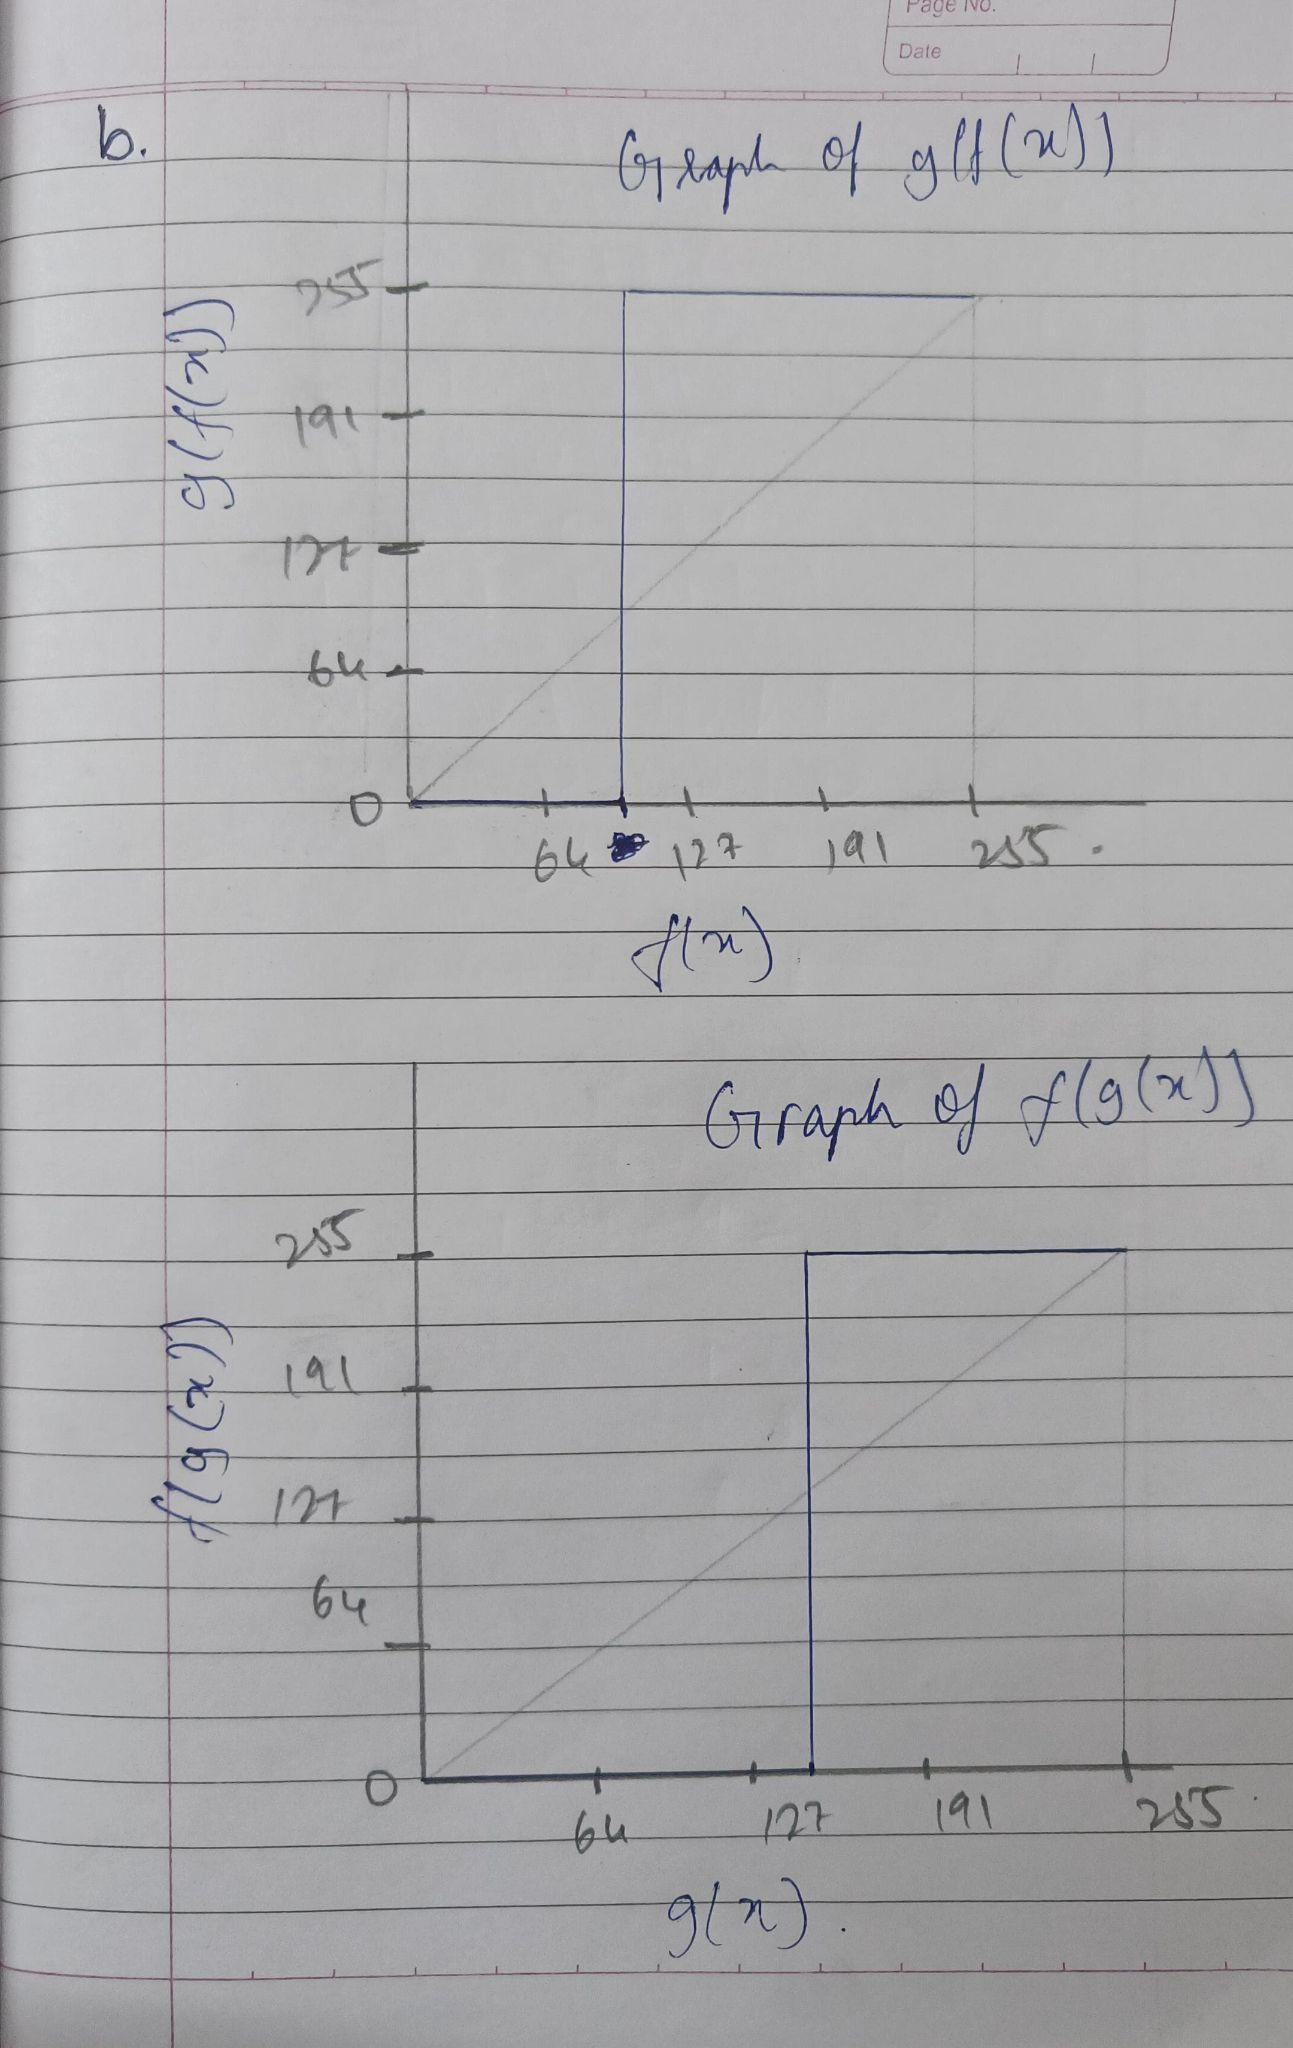 Page No.
Date
b.
Graph of g(f(x))
g(f(x))
255
191
127
64
0
64 127 191 255.
f(x)
Graph of f(g(x))
f(g(x))
255
191
127
64
0
64 127 191 255.
g(x).